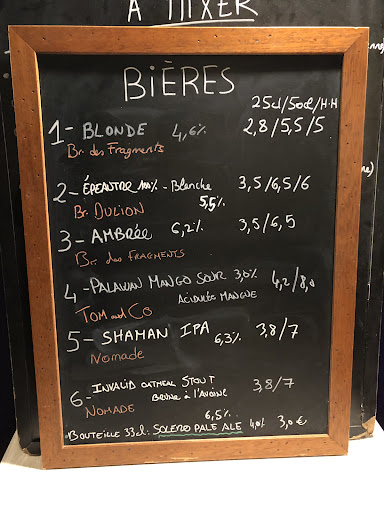 A MIXER
BIÈRES
25cl/50cl/H-H
1- BLONDE 4,6% 2,8/5,5/5
Br. des Fragments
2- ÉPEAUTRE 100% - Blanche 3,5/6,5/6
Br. DULION 5,5%
3- AMBRÉE 6,2% 3,5/6,5
Br. des FRAGMENTS
4- PALAWAN MANGO SOUR 3,0% 4,2/8,0
ACIDULÉE MANGUE
TOM and Co
5- SHAMAN IPA 6,3% 3,8/7
Nomade
6- INVALID OATMEAL STOUT 3,8/7
BRUNE à l'AVOINE
NOMADE 6,5%
BOUTEILLE 33cl: SOLERO PALE ALE 4,0% 3,0€